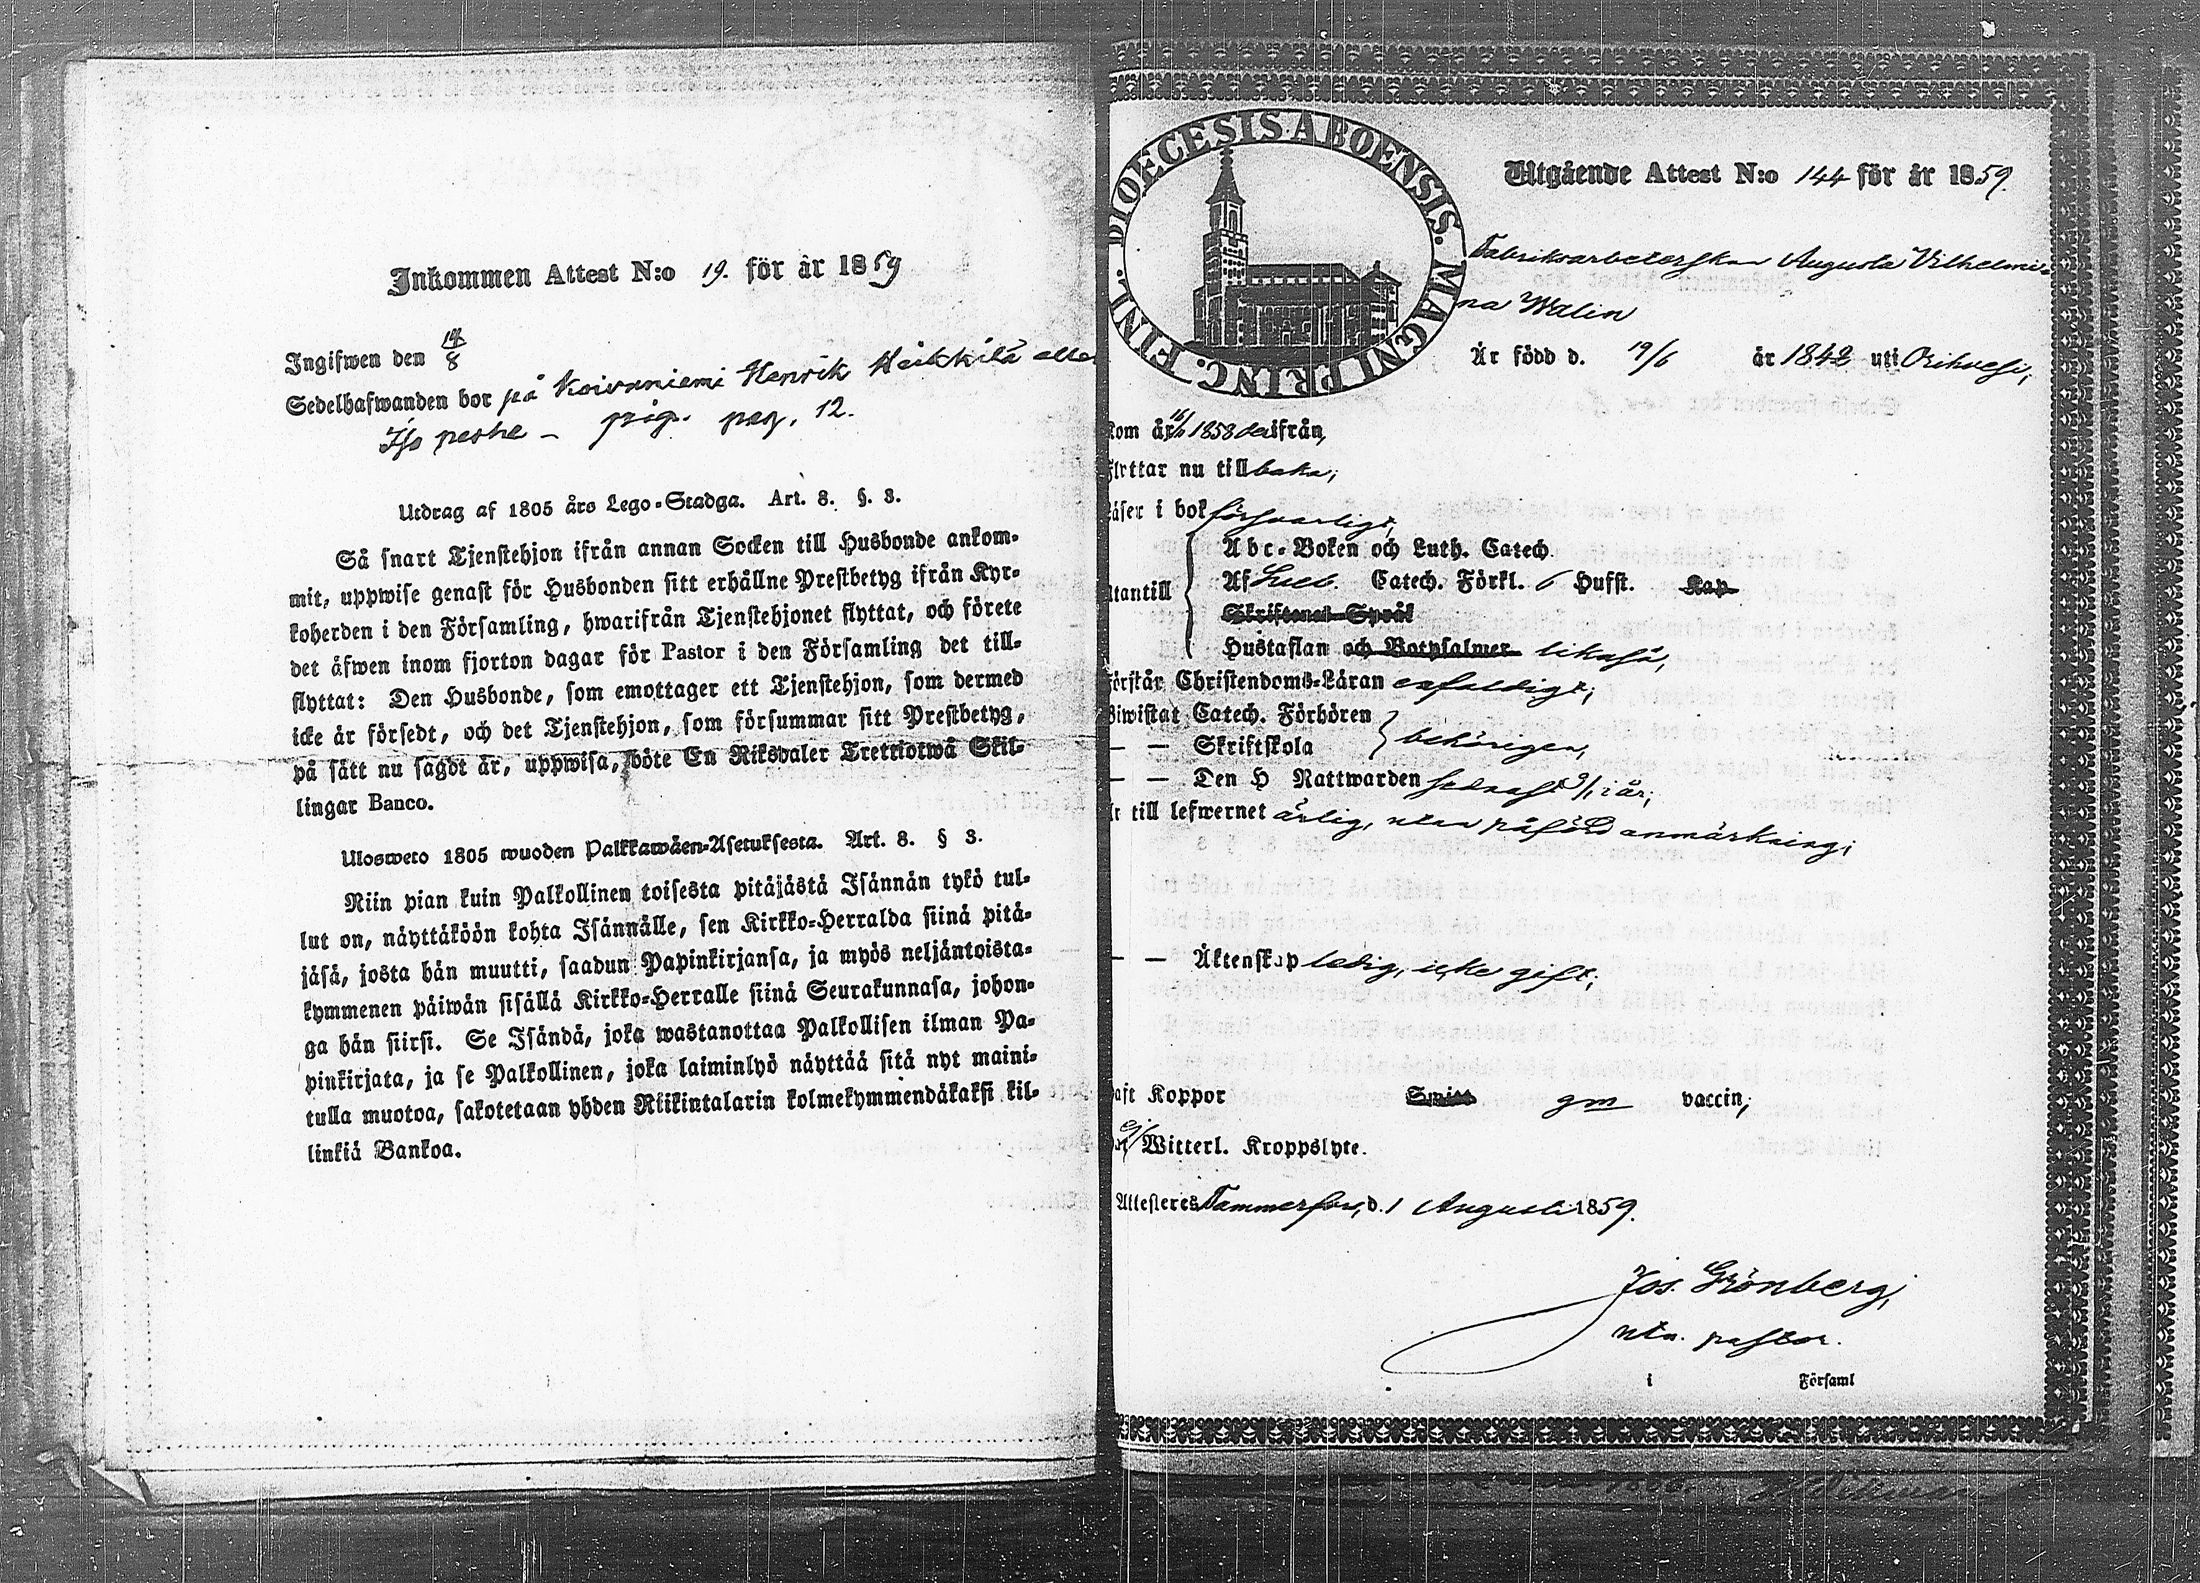 Inkommen Attest N:o 19. för år 1859
Ingifwen den 14/8
Sedelhafwanden bor på Koivuniemi Henrik Heikkilä eller
Iso perhe – prip. pag. 12.
Utdrag af 1805 års Lego-Stadga. Art. 8. §. 3.
Så snart Tjenstehjon ifrån annan Socken till Husbonde ankom-
mit, uppwise genast för Husbonden sitt erhållne Prestbetyg ifrån Kyr-
koherden i den Församling, hwarifrån Tjenstehjonet flyttat, och förete
det äfwen inom fjorton dagar för Pastor i den Församling det till-
flyttat: Den Husbonde, som emottager ett Tjenstehjon, som dermed
icke är försedt, och det Tjenstehjon, som försummar sitt Prestbetyg,
på sätt nu sagdt är, uppwisa, böte En Riksdaler Trettiotwå Skil-
lingar Banco.
Ulosweto 1805 wuoden Palkkawäen-Asetuksesta. Art. 8. § 3.
Niin pian kuin Palkollinen toisesta pitäjästä Isännän tykö tul-
lut on, näyttäköön kohta Isännälle, sen Kirkko-Herralda siinä pitä-
jäsä, josta hän muutti, saadun Papinkirjansa, ja myös neljäntoista-
kymmenen päiwän sisällä Kirkko-Herralle siinä Seurakunnasa, johon-
ga hän siirsi. Se Isändä, joka wastanottaa Palkollisen ilman Pa-
pinkirjata, ja se Palkollinen, joka laiminlyö näyttää sitä nyt maini-
tulla muotoa, sakotetaan yhden Riikintalarin kolmekymmendäkaksi kil-
linkiä Bankoa.
DIOECESIS ABOENSIS. MAGNI PRINC. FINL.
Utgående Attest N:o 144 för år 1859.
Fabriksarbeterskan Augusta Vilhelmi-
na Walin
Är född d. 19/6 år 1842 uti Orihvesi;
kom år 1858 derifrån,
Flyttar nu tillbaka;
Läser i bok försvarligt,
Abc-Boken och Luth. Catech.
Utantill Af Sveb. Catech. Förkl. 6 Hufst. Kap
Skriftenes Språk
Hustaflan och Botpsalmer likaså,
Förstår Christendoms-Läran enfaldigt;
Biwistat Catech. Förhören
— — Skriftskola behörigen,
— — Den H Nattwarden sednast 3/1 i år;
Är till lefwernet ärlig, utan påförd anmärkning;
— — Äktenskap ledig, icke gift;
Haft Koppor Smitt gm vaccin;
Witterl. Kroppslyte.
Attesteres Tammerfors, d. 1 Augusti 1859.
Jos. Grönberg,
pastor.
i Församl